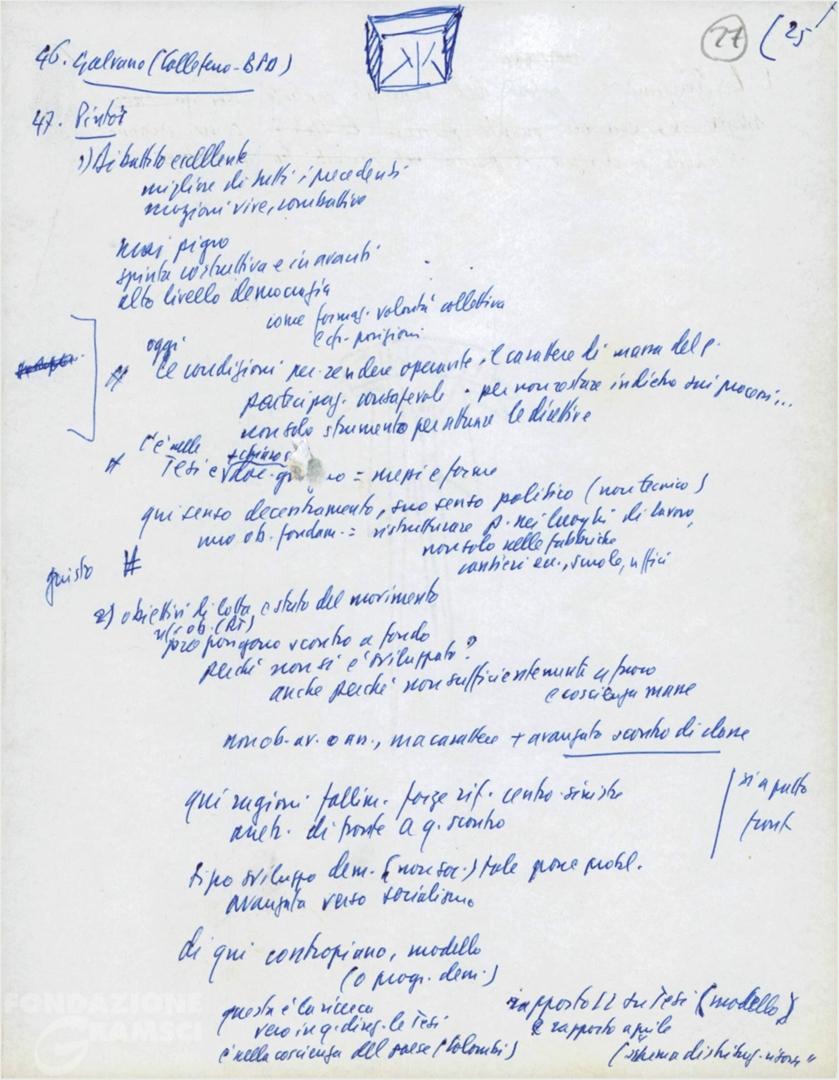 27 (25
46. Galvano (Colleferro - BPD)
47. Pintor
1) Dibattito eccellente
migliore di tutti i precedenti
mozioni vive, combattive
mai pigro
spinta costruttiva e in avanti
alto livello democrazia
come formaz. volontà collettiva
e cfr. posizioni
oggi
le condizioni per rendere operante il carattere di massa del p.
particip. consapevole - per non restare indietro sui processi...
non solo strumento per attuare le direttive
c'è nelle + chiaro
Tesi e = mezzi e forme
qui senso decentramento, suo senso politico (non tecnico)
uno ob. fondam. = ristrutturare p. nei luoghi di lavoro,
non solo nelle fabbriche
cantieri ecc., scuole, uffici
giusto #
2) obiettivi di lotta e stato del movimento
ns/ ob. (RS)
propongono scontro a fondo
perché non si è sviluppato?
anche perché non sufficientemente a fuoco
e coscienza masse
non ob. av. o arr., ma carattere + avanzato scontro di classe
qui ragioni fallim. forze rif. centro-sinistra
arretr. di fronte a q. scontro
tipo sviluppo dem. (non soc.) tale pone probl.
avanzata verso socialismo
di qui contropiano, modello
(o progr. dem.)
questa è la ricerca
vero in q. direz. le Tesi
è nella coscienza del paese (Colombi)
rapporto LL su Tesi (modello)
e rapporto aprile
("schema distribuz. risorse"
FONDAZIONE
GRAMSCI